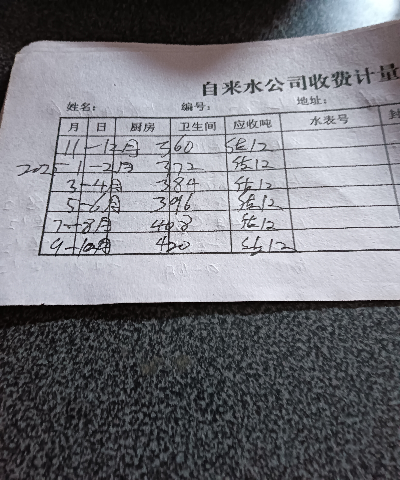 自来水公司收费计量
姓名： 编号： 地址：
月 日 厨房 卫生间 应收吨 水表号
11-12月 360 估12
2025-1-2月 372 估12
3-4月 384 估12
5-6月 396 估12
7-8月 408 估12
9-10月 420 估12